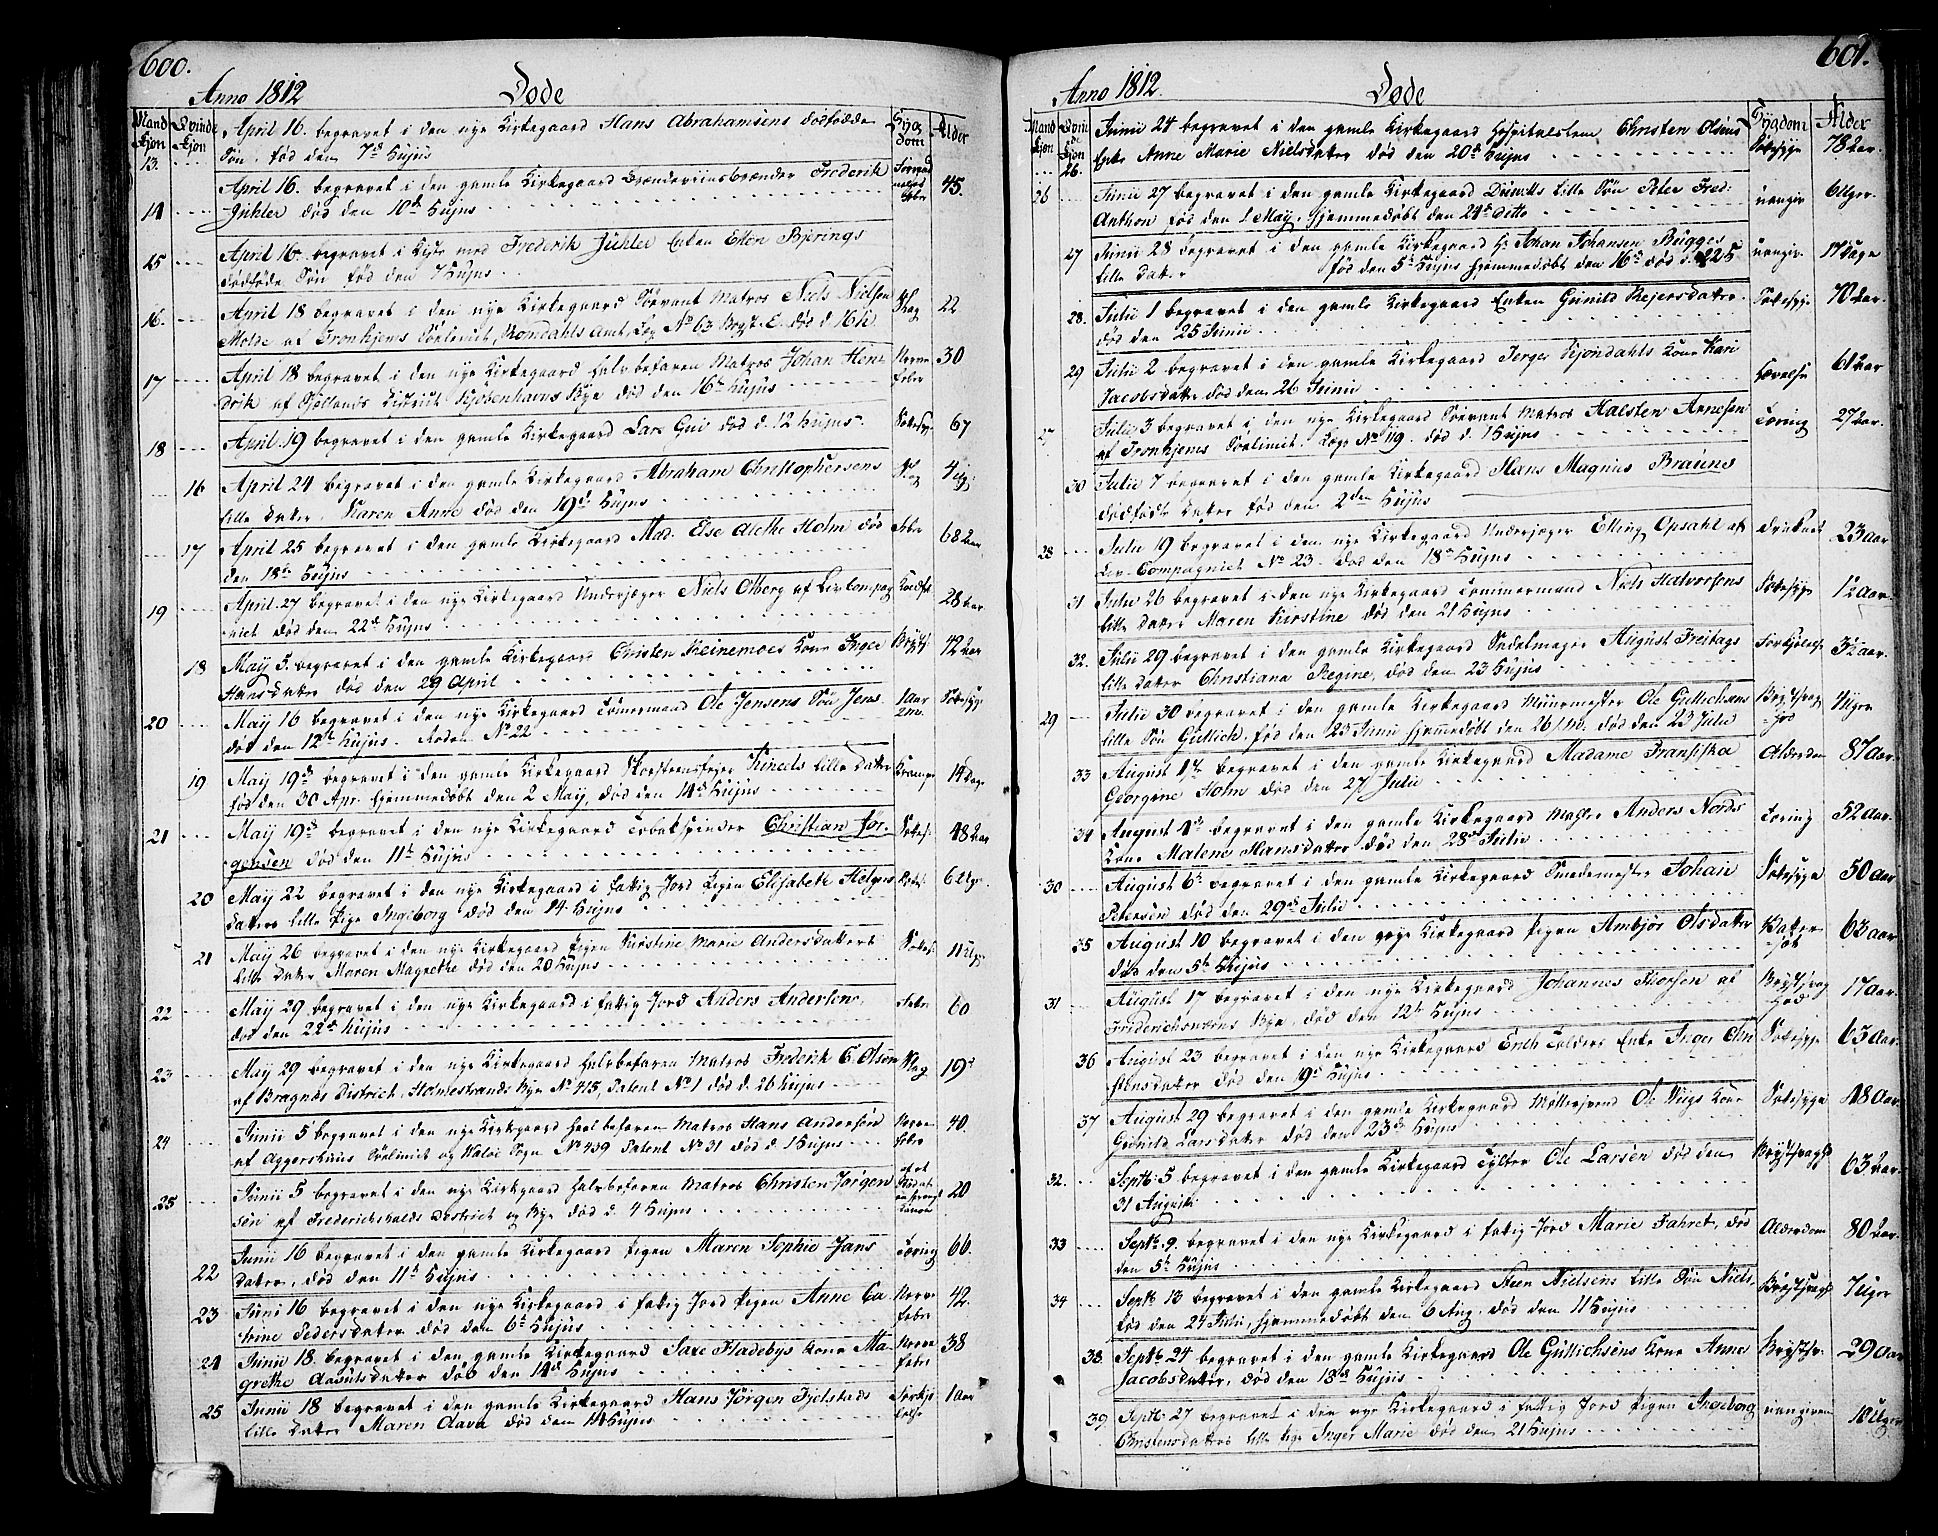 600.
Anno 1812 Døde
Mand Kjøn Qvinde Kjøn Sygdom Alder
13. April 16. begravet i den nye Kirkegaard Hans Abrahamsens dødfødde
Søn, fød den 7d Hujus
14 April 16. begravet i den gamle Kirkegaard Brændeviinsbrænder Frederik 45.
Juhler død den 10de Hujus
15 April 16. begravet i Kiste med Frederik Juhler Enken Ellen Bjerings
dødføde Søn fød den 7 Hujus
16. April 18 begravet i den nye Kirkegaard Søevant Matros Niels Nielsen Slag 22
Molde af Tronhjems Sølimit, Romsdahls Amt, Læg No 63 død d. 16h
17 April 18 begravet i den nye Kirkegaard halvbefaren Matros Johan Hen- Nerve 30
drik af Sjællands District Kjøbenhavns Bye død den 16de Hujus feber
18 April 19 begravet i den gamle Kirkegaard Lars død d. 12 Hujus 67
16 April 24 begravet i den gamle Kirkegaard Abraham Christophersens Slag 4 Ug.
lille Datter, Karen Anne død den 19d Hujus
17 April 25 begravet i den gamle Kirkegaard Mad. Else Alethe Holm død Feber 68 Aar
den 18de Hujus
19 April 27 begravet i den nye Kirkegaard Underjæger Niels Olberg af Liv Compag 28 Aar
niet død den 22d Hujus
18 May 5. begravet i den gamle Kirkegaard Christen Reinemoes Kone Inger 42 Aar
Hansdatter død den 29 April
20 May 16 begravet i den nye Kirkegaard Tømermand Ole Jensens Søn Jens 1 Aar
død den 12te Hujus. Roden No 22
19 May 19de begravet i den gamle Kirkegaard Skorsteensfejer lille Datter Krampe 14 Dage
fød den 30 Apr. hjemmedøbt den 2 May, død den 14de Hujus
21 May 19de begravet i den nye Kirkegaard Tobakspinder Christian Jør- 48 Aar
gensen død den 11te Hujus
20 May 22 begravet i den nye Kirkegaard i fattig Jord Pigen Elisabeth Helges 6 Uger
Datters lille Pige Ingeborg død den 14 Hujus
21 May 26 begravet i den nye Kirkegaard Pigen Kirstine Marie Andersdatters 11 Uger
lille Datter Maren Magrethe død den 20 Hujus
22 May 29 begravet i den nye Kirkegaard i fattig Jord Anders Andersen Feber 60
død den 22de Hujus
23 May 29 begravet i den nye Kirkegaard halvbefaren Matros Frederik C. Olsen Slag 19
af Bragnæs District, Holmestrands Bye No 415, Patent No 1 død d. 26 hujus
24 Junii 5 begravet i den nye Kirkegaard heelbefaren Matros Hans Andersen Nerve 40
af Aggershuus Sølimit og Sogn No 439 Patent No 31 død d. 1 Hujus feber
25 Junii 5 begravet i den nye Kirkegaard halvbefaren Matros Christen Jørgen 20
sen af Frederichshalds District og Bye død d. 4 Hujus
22 Junii 16 begravet i den gamle Kirkegaard Pigen Maren Sophie Jans Tæring 66.
Datter, død den 11te Hujus
23 Juni 16 begravet i den nye Kirkegaard i fattig Jord Pigen Anne Ca Nerve 42.
trine Pedersdatter død den 6te Hujus feber
24 Junii 18. begravet i den gamle Kirkegaard Sare Fladebys Kone Ma- Nerve 38
grethe Aavutsdatter død den 14de Hujus feber
25 Junii 18 begravet i den gamle Kirkegaard Hans Jørgen Fjelstads 1 Aar
lille Datter Maren Aava død den 14 Hujus
601.
Anno 1812. Døde
Mand Kjøn Qvinde Kjøn Sygdom Alder
26. Junii 24 begravet i den gamle Kirkegaard Hospitalslem Christen Olsens Sotesyge 78 Aar.
Enke Anne Marie Nielsdatter død den 20de Hujus
26 Junii 27 begravet i den gamle Kirkegaard lille Søn Peter Fred- uangiv 6 Uger
Anthon fød den 1. May, hjemmedøbt den 24de ditto
27 Junii 28 begravet i den gamle Kirkegaard Hr Johan Johansen Bugges uangiv 17 Dage
lille Datter fød den 5te Hujus hjemmedøbt den 16de død d. 22
28. Julii 1 begravet i den gamle Kirkegaard Enken Gunild Rejersdatter. Sotesyge 70 Aar
død den 25 Junii
29 Julii 2 begravet i den gamle Kirkegaard Kone Kari Hævelse 61 Aar
Jacobsdatter død den 26 Junii
27 Julii 3 begravet i den nye Kirkegaard Søevant Matros Halsten Arnesen Tæring 27 Aar.
af Tronhjems Sølimit Lægs No 119. død d. 1 Hujus
30 Julii 7 begravet i den gamle Kirkegaard Hans Magnus Brauns
dødfødt Datter fød den 2den Hujus
28 Julii 19 begravet i den nye Kirkegaard Underjæger Elling Opsahl af druknet 23 Aar
Liv-Compagniet No 23 død den 18de Hujus
31 Julii 26 begravet i den nye Kirkegaard Tømmermand Niels Halvorsens Sotesyge 12 Aar.
lille Datter Maren Kirstine død den 21 Hujus
32. Julii 29 begravet i den gamle Kirkegaard Sadelmager August Freitags Forkjølelse 3½ Aar.
lille Datter Christiana Regine, død den 23 Hujus
29 Julii 30 begravet i den gamle Kirkegaard Muurmester Ole Gullichsens 4 Uger
lille Søn Gullich, fød den 25 Junii hjemmedøbt den 26 død den 23 Julii
33 August 1te begravet i den gamle Kirkegaard Madame Fransiska Alderdom 87 Aar.
Georgine Holm død den 27 Julii
34 August 1te begravet i den gamle Kirkegaard Anders Nords Tæring 52 Aar.
Kone Malene Hansdatter død den 28de Julii
30 August 6te begravet i den gamle Kirkegaard Smedemester Johan Sotesyge 50 Aar
Petersen død den 29de Julii
35 August 10 begravet i den nye Kirkegaard Pigen Ambjør Olsdatter 63 Aar
død den 5te Hujus
31 August 17 begravet i den nye Kirkegaard Johannes Thorsen af 17 Aar.
Friderichsværns Bye, død den 12te Hujus
36 August 23 begravet i den nye Kirkegaard Erich Enke Inger Chri Sotesyge 63 Aar
stensdatter død den 19de Hujus
37 August 29 begravet i den gamle Kirkegaard Møllersvend Ole Viigs Kone Sotesyge 48 Aar
Gunild Larsdatter død den 23de Hujus
32. Septbr 5 begravet i den gamle Kirkegaard Ole Larsen død den 63 Aar.
31 Augusti
33 Septbr 9. begravet i den nye Kirkegaard i fattig Jord Marie Fahret, død Alderdom 80 Aar
den 5te Hujus
34 Septbr 13 begravet i den gamle Kirkegaard Steen Nielsens lille Søn Niels, 7 Uger
fød den 24 Julii, hjemmedøbt den 6 Aug. død den 11 Hujus
38. Septbr 24 begravet i den gamle Kirkegaard Ole Gullichsens Kone Anne 29 Aar
Jacobsdatter, død den 18de Hujus
39 Septbr 27 begravet i den nye Kirkegaard i fattig Jord Pigen Ingeborg uangiven 18 Uger
Christensdatters lille Pige Inger Marie død den 21 Hujus